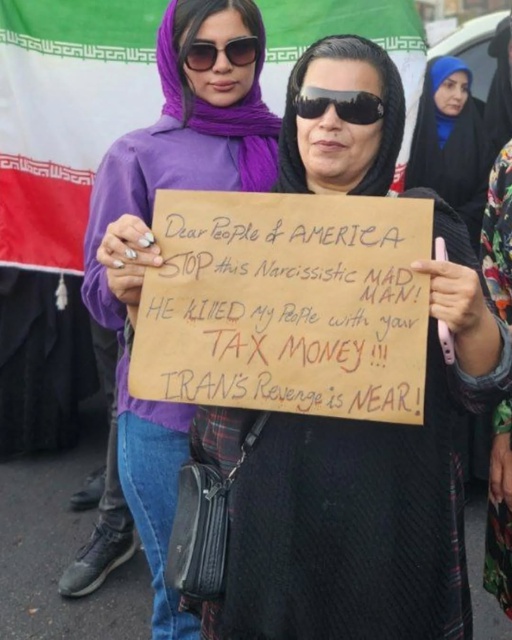 Dear People of AMERICA
STOP this Narcissistic MAD
MAN!
HE KILLED My People with your
TAX MONEY!!!
IRAN'S Revenge is NEAR!